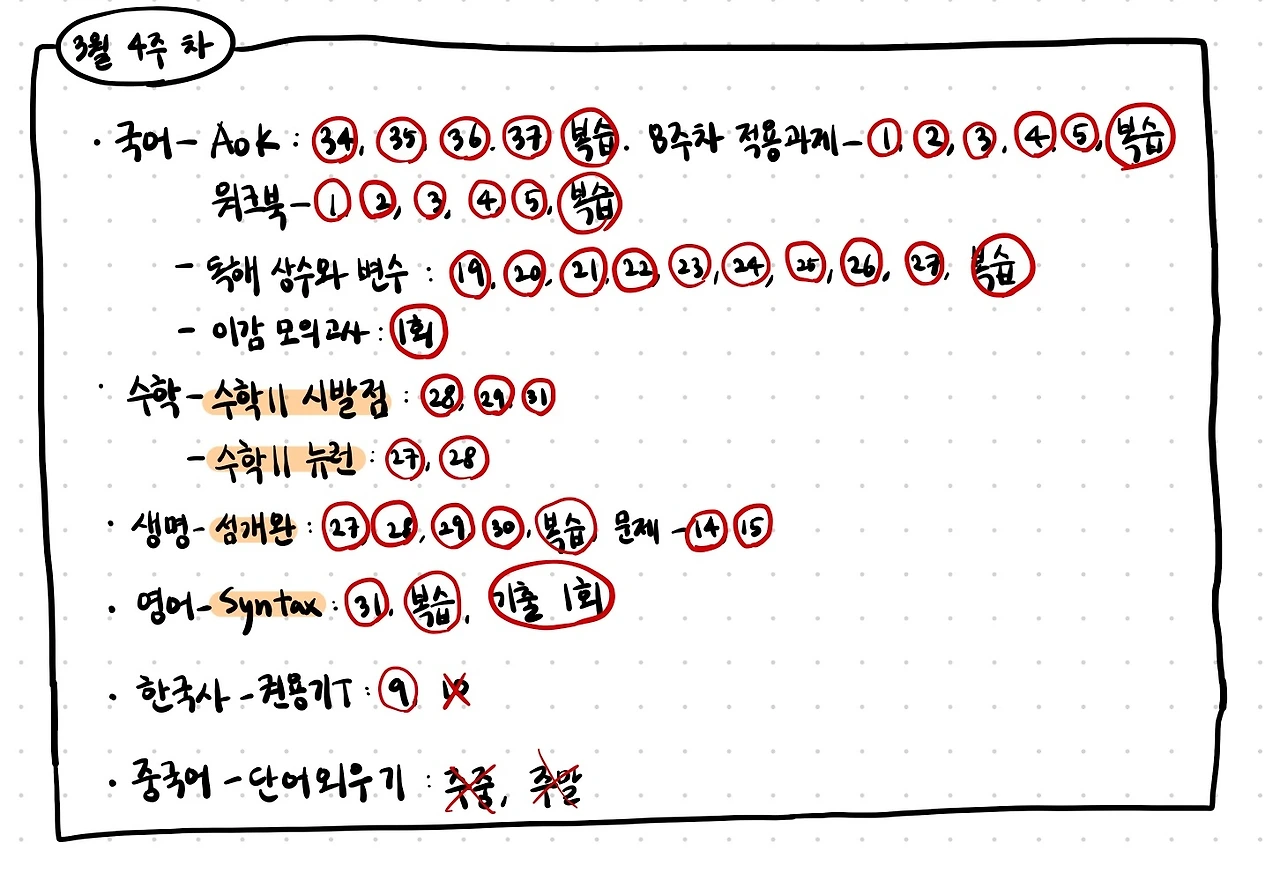 3월 4주 차
· 국어 - AOK : 34, 35, 36, 37 복습. 8주차 적용과제 - 1, 2, 3, 4, 5, 복습
워크북 - 1, 2, 3, 4, 5, 복습
- 독해 상수와 변수 : 19, 20, 21, 22, 23, 24, 25, 26, 27, 복습
- 이감 모의고사 : 1회
· 수학 - 수학II 시발점 : 28, 29, 31
- 수학II 뉴런 : 27, 28
· 생명 - 섬개완 : 27, 28, 29, 30, 복습 문제 - 14 15
· 영어 - Syntax : 31, 복습, 기출 1회
· 한국사 - 권용기T : 9, 10
· 중국어 - 단어외우기 : 주중, 주말